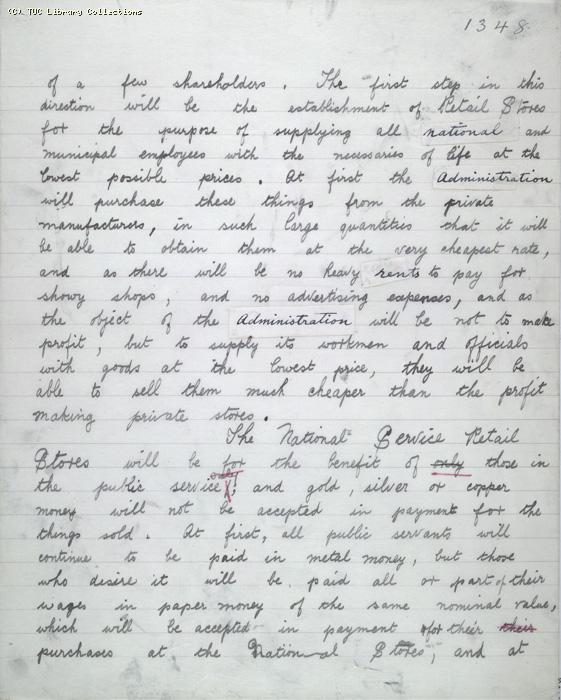 (C) TUC Library Collections
1348.
of a few shareholders. The first step in this
direction will be the establishment of Retail Stores
for the purpose of supplying all national and
municipal employees with the necessaries of life at the
lowest possible prices. At first the Administration
will purchase these things from the private
manufacturers, in such large quantities that it will
be able to obtain them at the very cheapest rate,
and as there will be no heavy rents to pay for
showy shops, and no advertising expenses, and as
the object of the Administration will be not to make
profit, but to supply its workmen and officials
with goods at the lowest price, they will be
able to sell them much cheaper than the profit
making private stores.
The National Service Retail
Stores will be for the benefit of only those in
the public service; and gold, silver or copper
money will not be accepted in payment for the
things sold. At first, all public servants will
continue to be paid in metal money, but those
who desire it will be paid all or part of their
wages in paper money of the same nominal value,
which will be accepted in payment for their their
purchases at the National Stores, and at